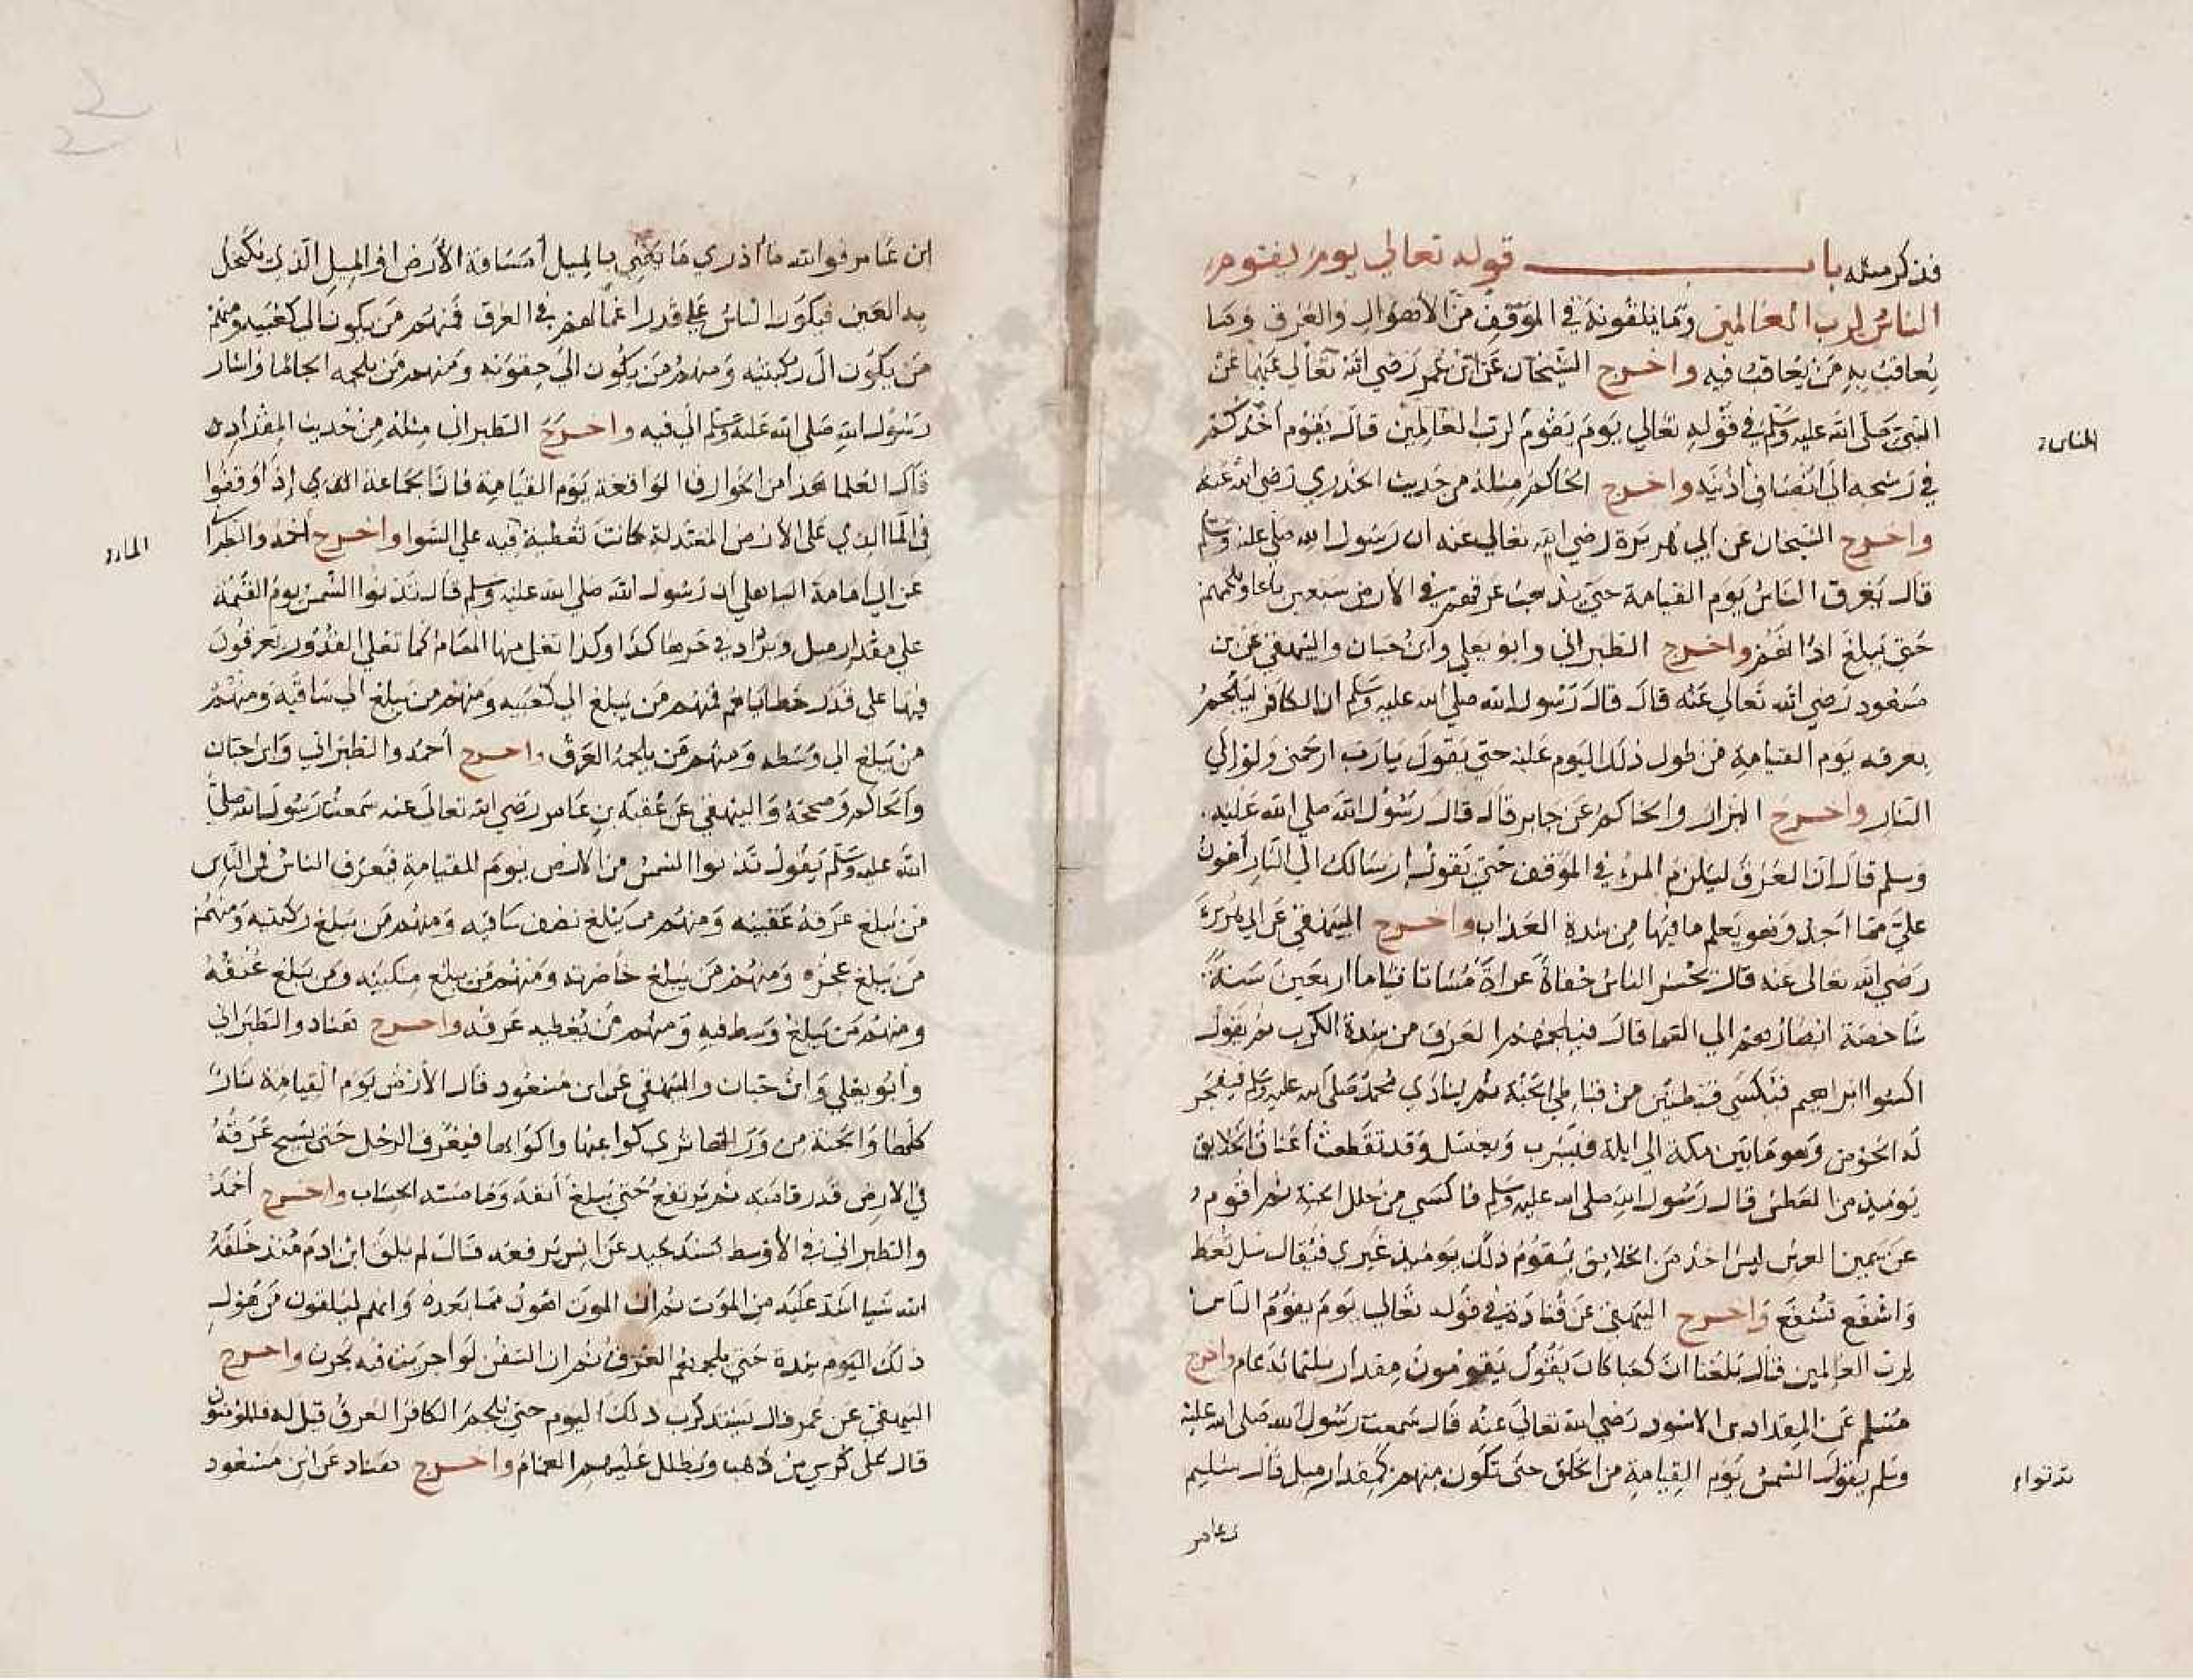 فذكر مثله باب قوله تعالى يوم يقوم
الناس لرب العالمين وما يلقونه في الموقف من الأهوال والعرق وما
يعاقب به من يعاقب فيه واخرج الشيخان عن ابن عمر رضي الله تعالى عنهما عن
النبي صلى الله عليه وسلم في قوله تعالى يوم يقوم لرب العالمين قال يقوم أحدكم
الناس
في رشحه الى انصاف أذنيه واخرج الحاكم مثله من حديث الخدري رضي الله عنه
واخرج الشيخان عن أبي هريرة رضي الله تعالى عنه ان رسول الله صلى الله عليه وسلم
قال يعرق الناس يوم القيامة حتى يذهب عرقهم في الأرض سبعين باعا ويلجمهم
حتى يبلغ اذانهم واخرج الطبراني وابو يعلي وابن حبان والبيهقي عن بن
مسعود رضي الله تعالى عنه قال قال رسول الله صلى الله عليه وسلم ان الكافر ليلجم
بعرقه يوم القيامة من طول ذلك اليوم عليه حتى يقول يا رب ارحمني ولو الي
النار واخرج البزار والحاكم عن جابر قال قال رسول الله صلى الله عليه
وسلم قال ان العرق ليلزم المرء في الموقف حتى يقول ارسالك الى النار أهون
علي مما اجد وهو يعلم ما فيها من شدة العذاب واخرج البيهقي عن ابي هريرة
رضي الله تعالى عنه قال يحشر الناس حفاة عراة مشاتا قياما اربعين سنة
شاخصة ابصارهم الي السما قال فيلجمهم العرق من شدة الكرب ثم يقول
اكسوا ابراهيم فيكسى قبطيتين من قباطي الجنة ثم ينادي محمد صلى الله عليه وسلم فيفجر
له الحوض وهو ما بين مكة الى ايلة فيشرب ويغتسل وقد تقطعت أعناق الخلايق
يوميذ من العطش قال رسول الله صلى الله عليه وسلم فاكسي من حلل الجنة ثم أقوم
عن يمين العرش ليس احد من الخلايق يقوم ذلك يوميذ غيري فيقال سل تعط
واشفع تشفع واخرج البيهقي عن قتادة في قوله تعالي يوم يقوم الناس
لرب العالمين قال بلغنا ان كعبا كان يقول يقومون مقدار ثلثمائة عام واخرج
مسلم عن المقداد بن الاسود رضي الله تعالى عنه قال سمعت رسول الله صلى الله عليه
وسلم يقول الشمس يوم القيامة من الخلق حتى تكون منهم كمقدار ميل قال سليم
تدنواء
بن عامر
ابن عامر فوالله ما أدري ما يعني بالميل أمسافة الأرض او الميل الذي تكحل
به العين فيكون الناس علي قدر اعمالهم في العرق فمنهم من يكون الي كعبيه ومنهم
من يكون الى ركبتيه ومنهم من يكون الى حقويه ومنهم من يلجمه الجاما واشار
رسول الله صلى الله عليه وسلم الى فيه واخرج الطبراني مثله من حديث المقدام
قال العلما هذا من الخوارق الواقعة يوم القيامة فان الجماعة إذا وقفوا
في الما الذي على الأرض المعتدلة كانت تغطية فيه علي السوا واخرج أحمد والطبراني
عن ابي أمامة الباهلي أن رسول الله صلى الله عليه وسلم قال تدنوا الشمس يوم القيمة
علي مقدار ميل ويزاد في حرها كذا وكذا تغلي منها الهوام كما تغلي القدور يعرقون
فيها على قدر خطاياهم فمنهم من يبلغ الي كعبيه ومنهم من يبلغ الي ساقيه ومنهم
من يبلغ الى وسطه ومنهم من يلجمه العرق واخرج أحمد والطبراني وابن حبان
والحاكم وصححه والبيهقي عن عقبة بن عامر رضي الله تعالى عنه سمعت رسول الله صلى
الله عليه وسلم يقول تدنوا الشمس من الارض يوم القيامة فيعرق الناس فمن الناس
من يبلغ عرقه عقبيه ومنهم من يبلغ نصف ساقيه ومنهم من يبلغ ركبتيه ومنهم
من يبلغ عجزه ومنهم من يبلغ خاصرته ومنهم من يبلغ منكبيه ومن يبلغ عنقه
ومنهم من يبلغ وسط فيه ومنهم من يغطيه عرقه واخرج هناد والطبراني
وأبو يعلي وابن حبان والبيهقي عن ابن مسعود قال الأرض يوم القيامة نار
كلها والجنة من ورائها ترى كواعبها واكوابها فيعرق الرجل حتى يسيح عرقه
في الارض قدر قامته ثم يرتفع حتى يبلغ أنفه وما مسه الحساب واخرج أحمد
والطبراني في الأوسط بسند جيد عن انس يرفعه قال لم يلق ابن ادم منذ خلقه
الله شيا اشد عليه من الموت ثم ان الموت اهون مما بعده وانهم ليلقون من هول
ذلك اليوم شدة حتى يلجمهم العرق ثم ان السفن لو اجريت فيه لجرت واخرج
البيهقي عن عمر قال يشتد كرب ذلك اليوم حتى يلجم الكافر العرق قيل له فالمؤمنون
قال على كرسي من ذهب ويظلل عليهم الغمام واخرج هناد عن ابن مسعود